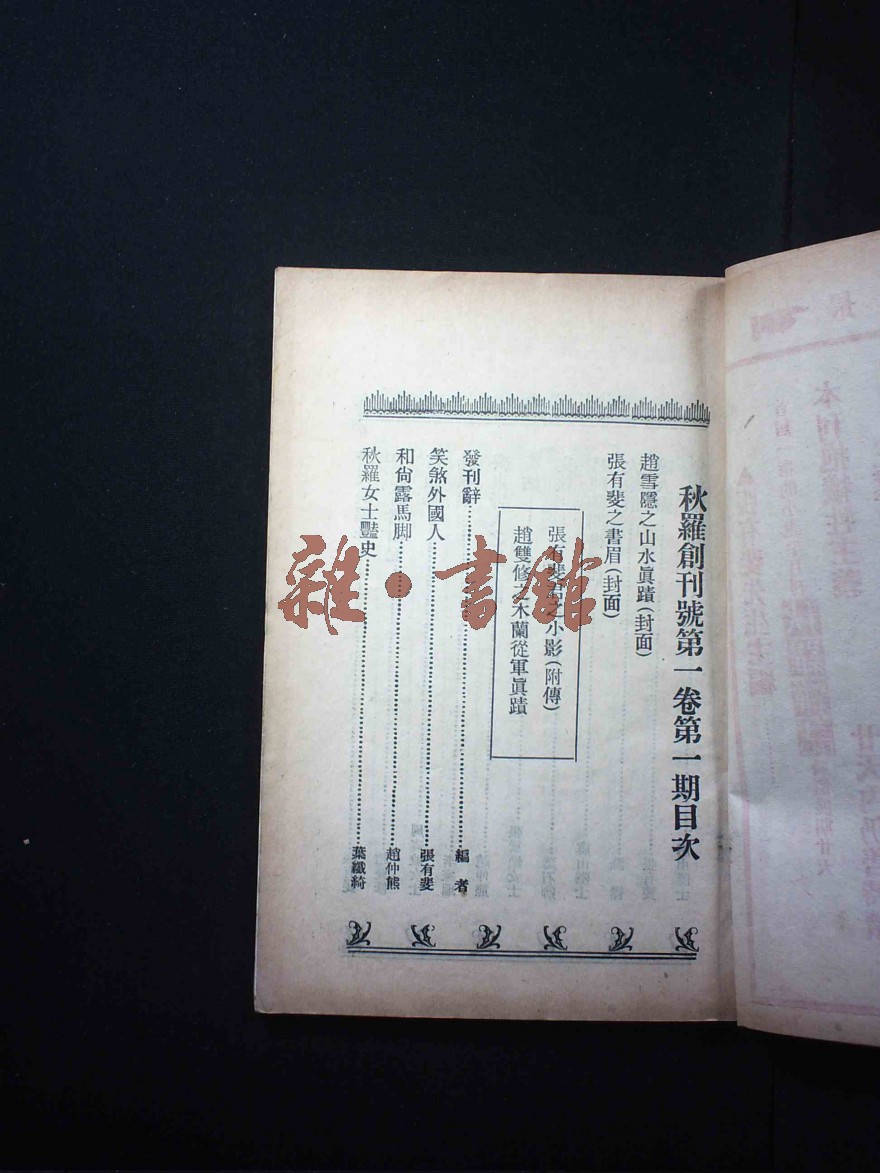 秋羅創刊號第一卷第一期目次
趙雪隱之山水眞蹟(封面)
張有斐之書眉(封面)
張有斐君之小影(附傳)
趙雙修之木蘭從軍眞蹟
發刊辭 編者
笑煞外國人 張有斐
和尙露馬脚 趙仲熊
秋羅女士豔史 葉纖綺
雜·書館